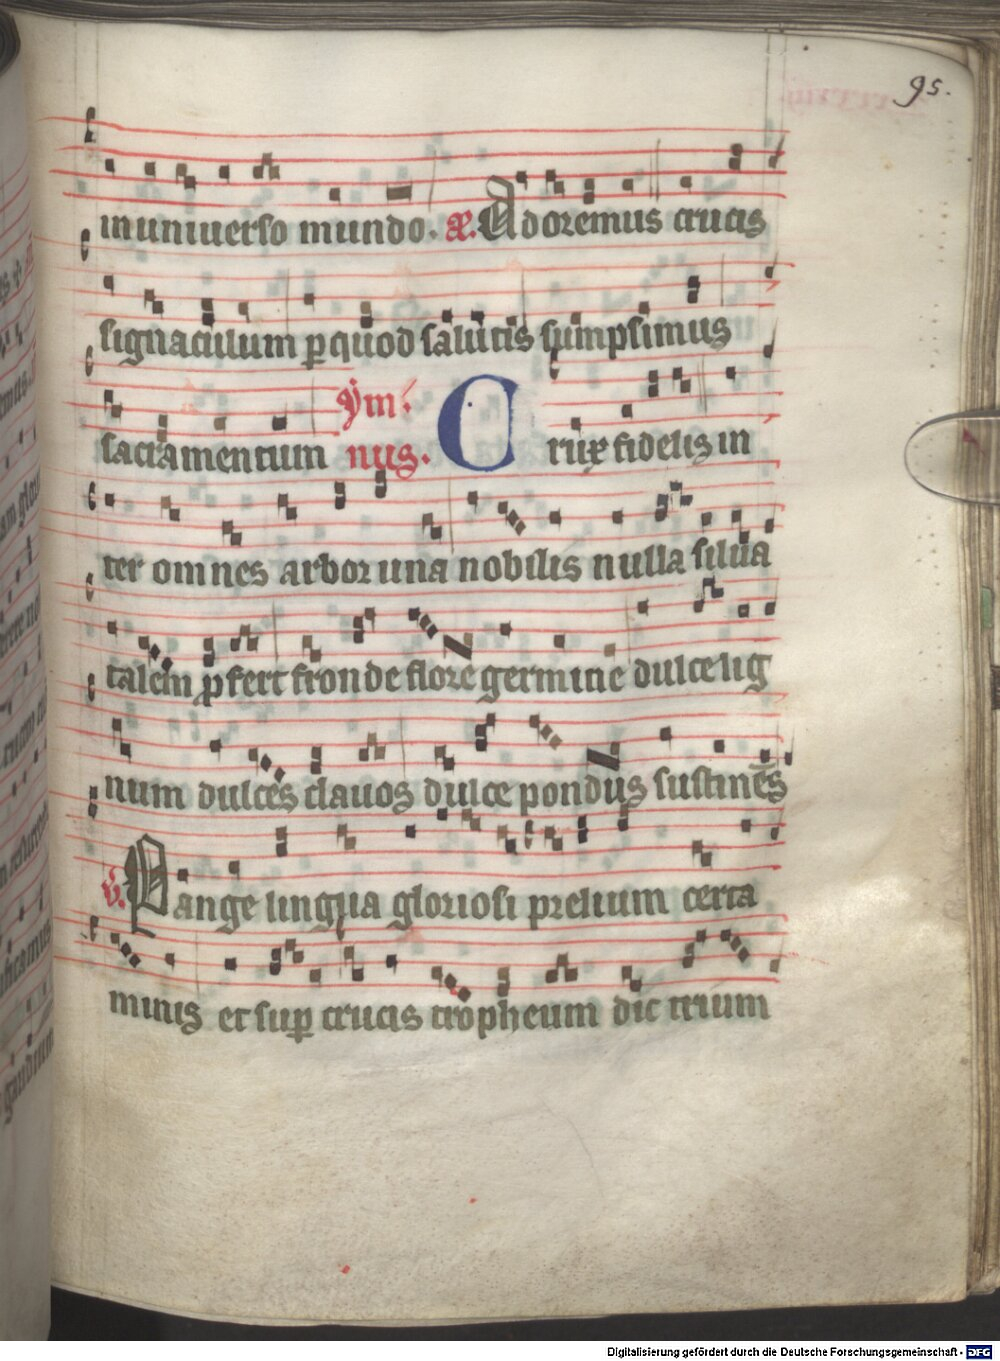 95.
in uniuerso mundo. æ. Adoremus crucis
signaculum ꝑ quod salutis sumpsimus
sacramentum ẏm
nus. Crux fidelis in
ter omnes arbor una nobilis nulla silua
talem ꝓfert fronde flore germine dulce lig
num dulces clauos dulce pondus sustinēs
v̇. Pange lingua gloriosi prelium certa
minis et suꝑ crucis tropheum dic trium
Digitalisierung gefördert durch die Deutsche Forschungsgemeinschaft - DFG